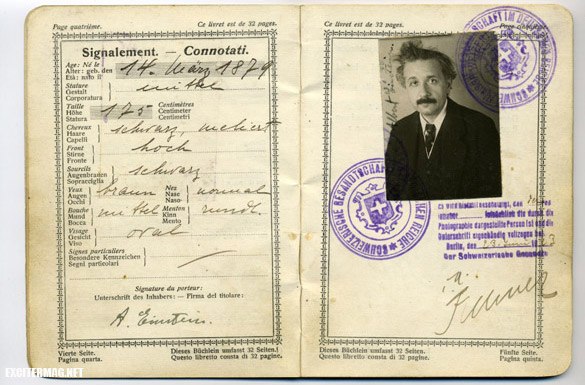 Page quatrième.
Ce livret est de 32 pages.
Signalement. — Connotati.
Age: Né le
Alter: geb. den
Età: nato il
14. März 1879
Stature
Gestalt
Corporatura
mittel
Taille
Höhe
Statura
175
Centimètres
Centimeter
Centimetri
Cheveux
Haare
Capelli
schwarz, meliert
Front
Stirne
Fronte
hoch
Sourcils
Augenbrauen
Sopracciglia
schwarz
Yeux
Augen
Occhi
braun
Nez
Nase
Naso
normal
Bouche
Mund
Bocca
mittel
Menton
Kinn
Mento
rund.
Visage
Gesicht
Viso
oval
Signes particuliers
Besondere Kennzeichen
Segni particolari
Signature du porteur:
Unterschrift des Inhabers: — Firma del titolare:
A. Einstein.
Vierte Seite.
Pagina quarta.
Dieses Büchlein umfasst 32 Seiten.
Questo libretto consta di 32 pagine.
EXCITERMAG.NET
Ce livret est de 32 pages.
Page cinquième.
SCHWEIZERISCHE GESANDTSCHAFT IM DEUTSCHEN REICHE
Es wird hiermit bescheinigt, dass
Inhaber die durch die
Photographie dargestellte Person ist und die
Unterschrift eigenhändig vollzogen hat
Berlin, den
Der Schweizerische Gesandte
Dieses Büchlein umfasst 32 Seiten.
Questo libretto consta di 32 pagine.
Fünfte Seite.
Pagina quinta.